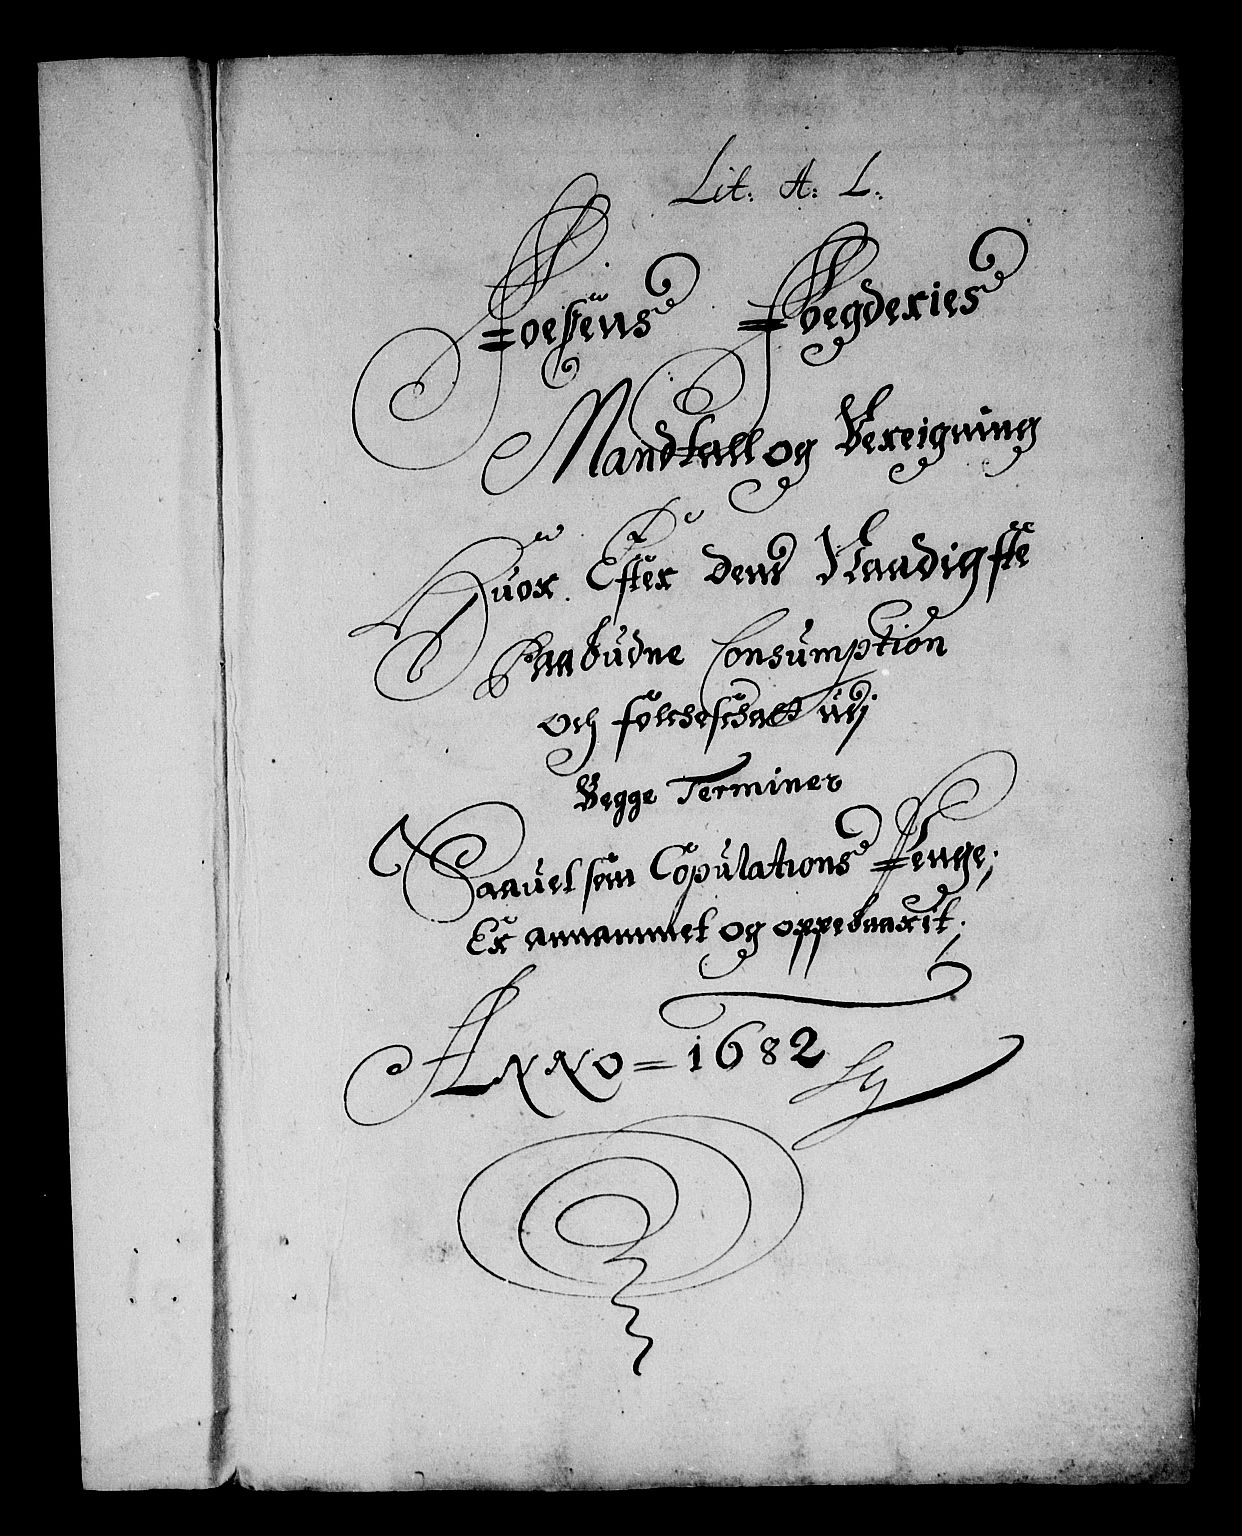 Lit. A: L:
Foesens Foegderies
Mandtall og Bereigning
Huor Efter dend Naadigste
Paabudne Consumption
och folcheschatt udj
Begge Terminer
Saauel som Copulations Penge;
Er annammet og oppebaarit;
Anno = 1682